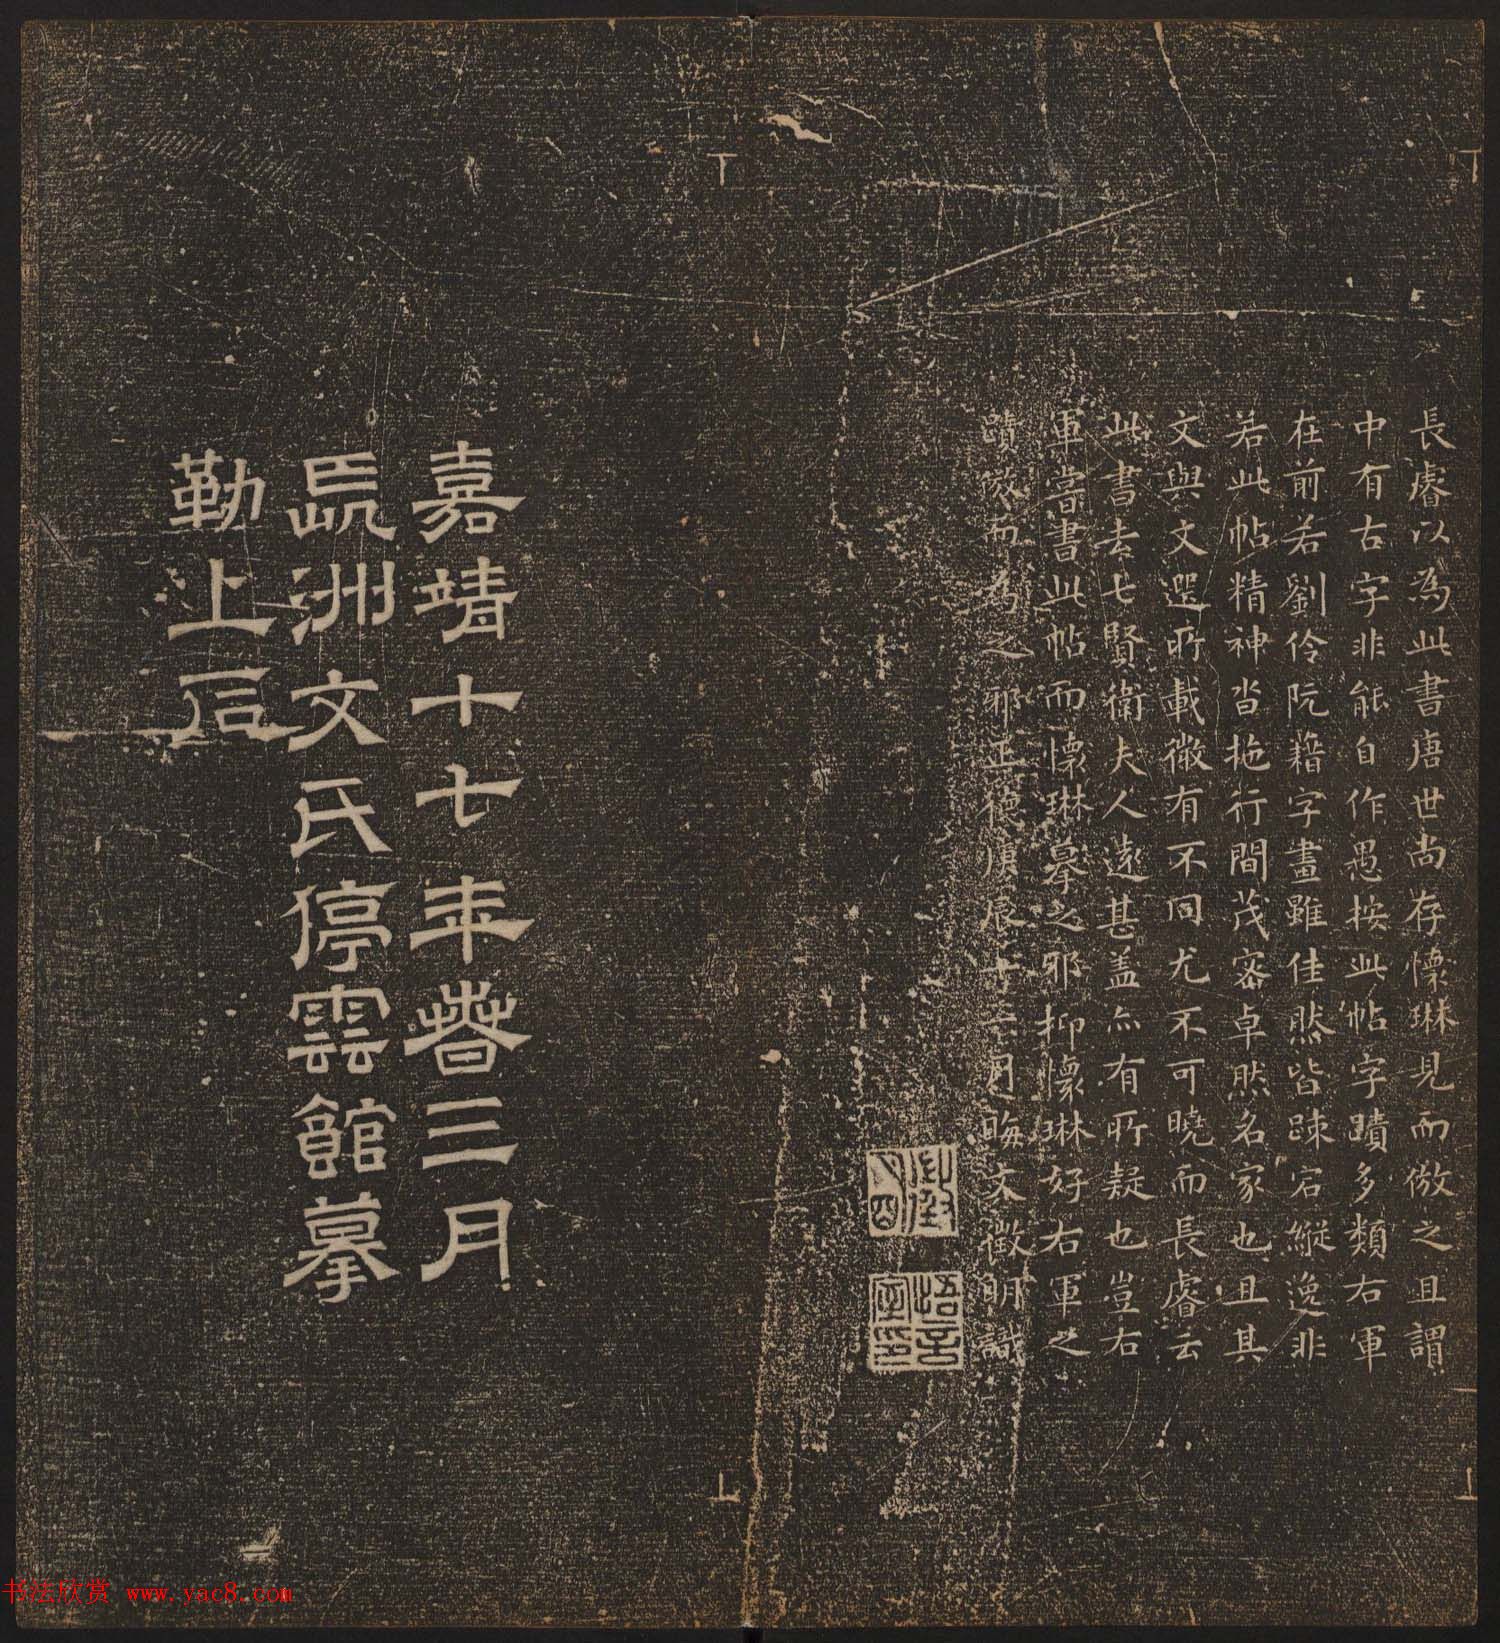 長睿以為此書唐世尚存懷琳見而倣之且謂
中有古字非能自作愚按此帖字蹟多類右軍
在前若劉伶阮籍字畫雖佳然皆踈宕縱逸非
若此帖精神沓拖行間茂密卓然名家也且其
文與文選所載微有不同尤不可曉而長睿云
此書去七賢衛夫人遠甚盖亦有所疑也豈右
軍嘗書此帖而懷琳摹之邪抑懷琳好右軍之
蹟倣而為之邪正德庚辰十二月晦文徵明識
悟言室印
嘉靖十七年春三月
長洲文氏停雲館摹
勒上石
书法欣赏 www.yac8.com